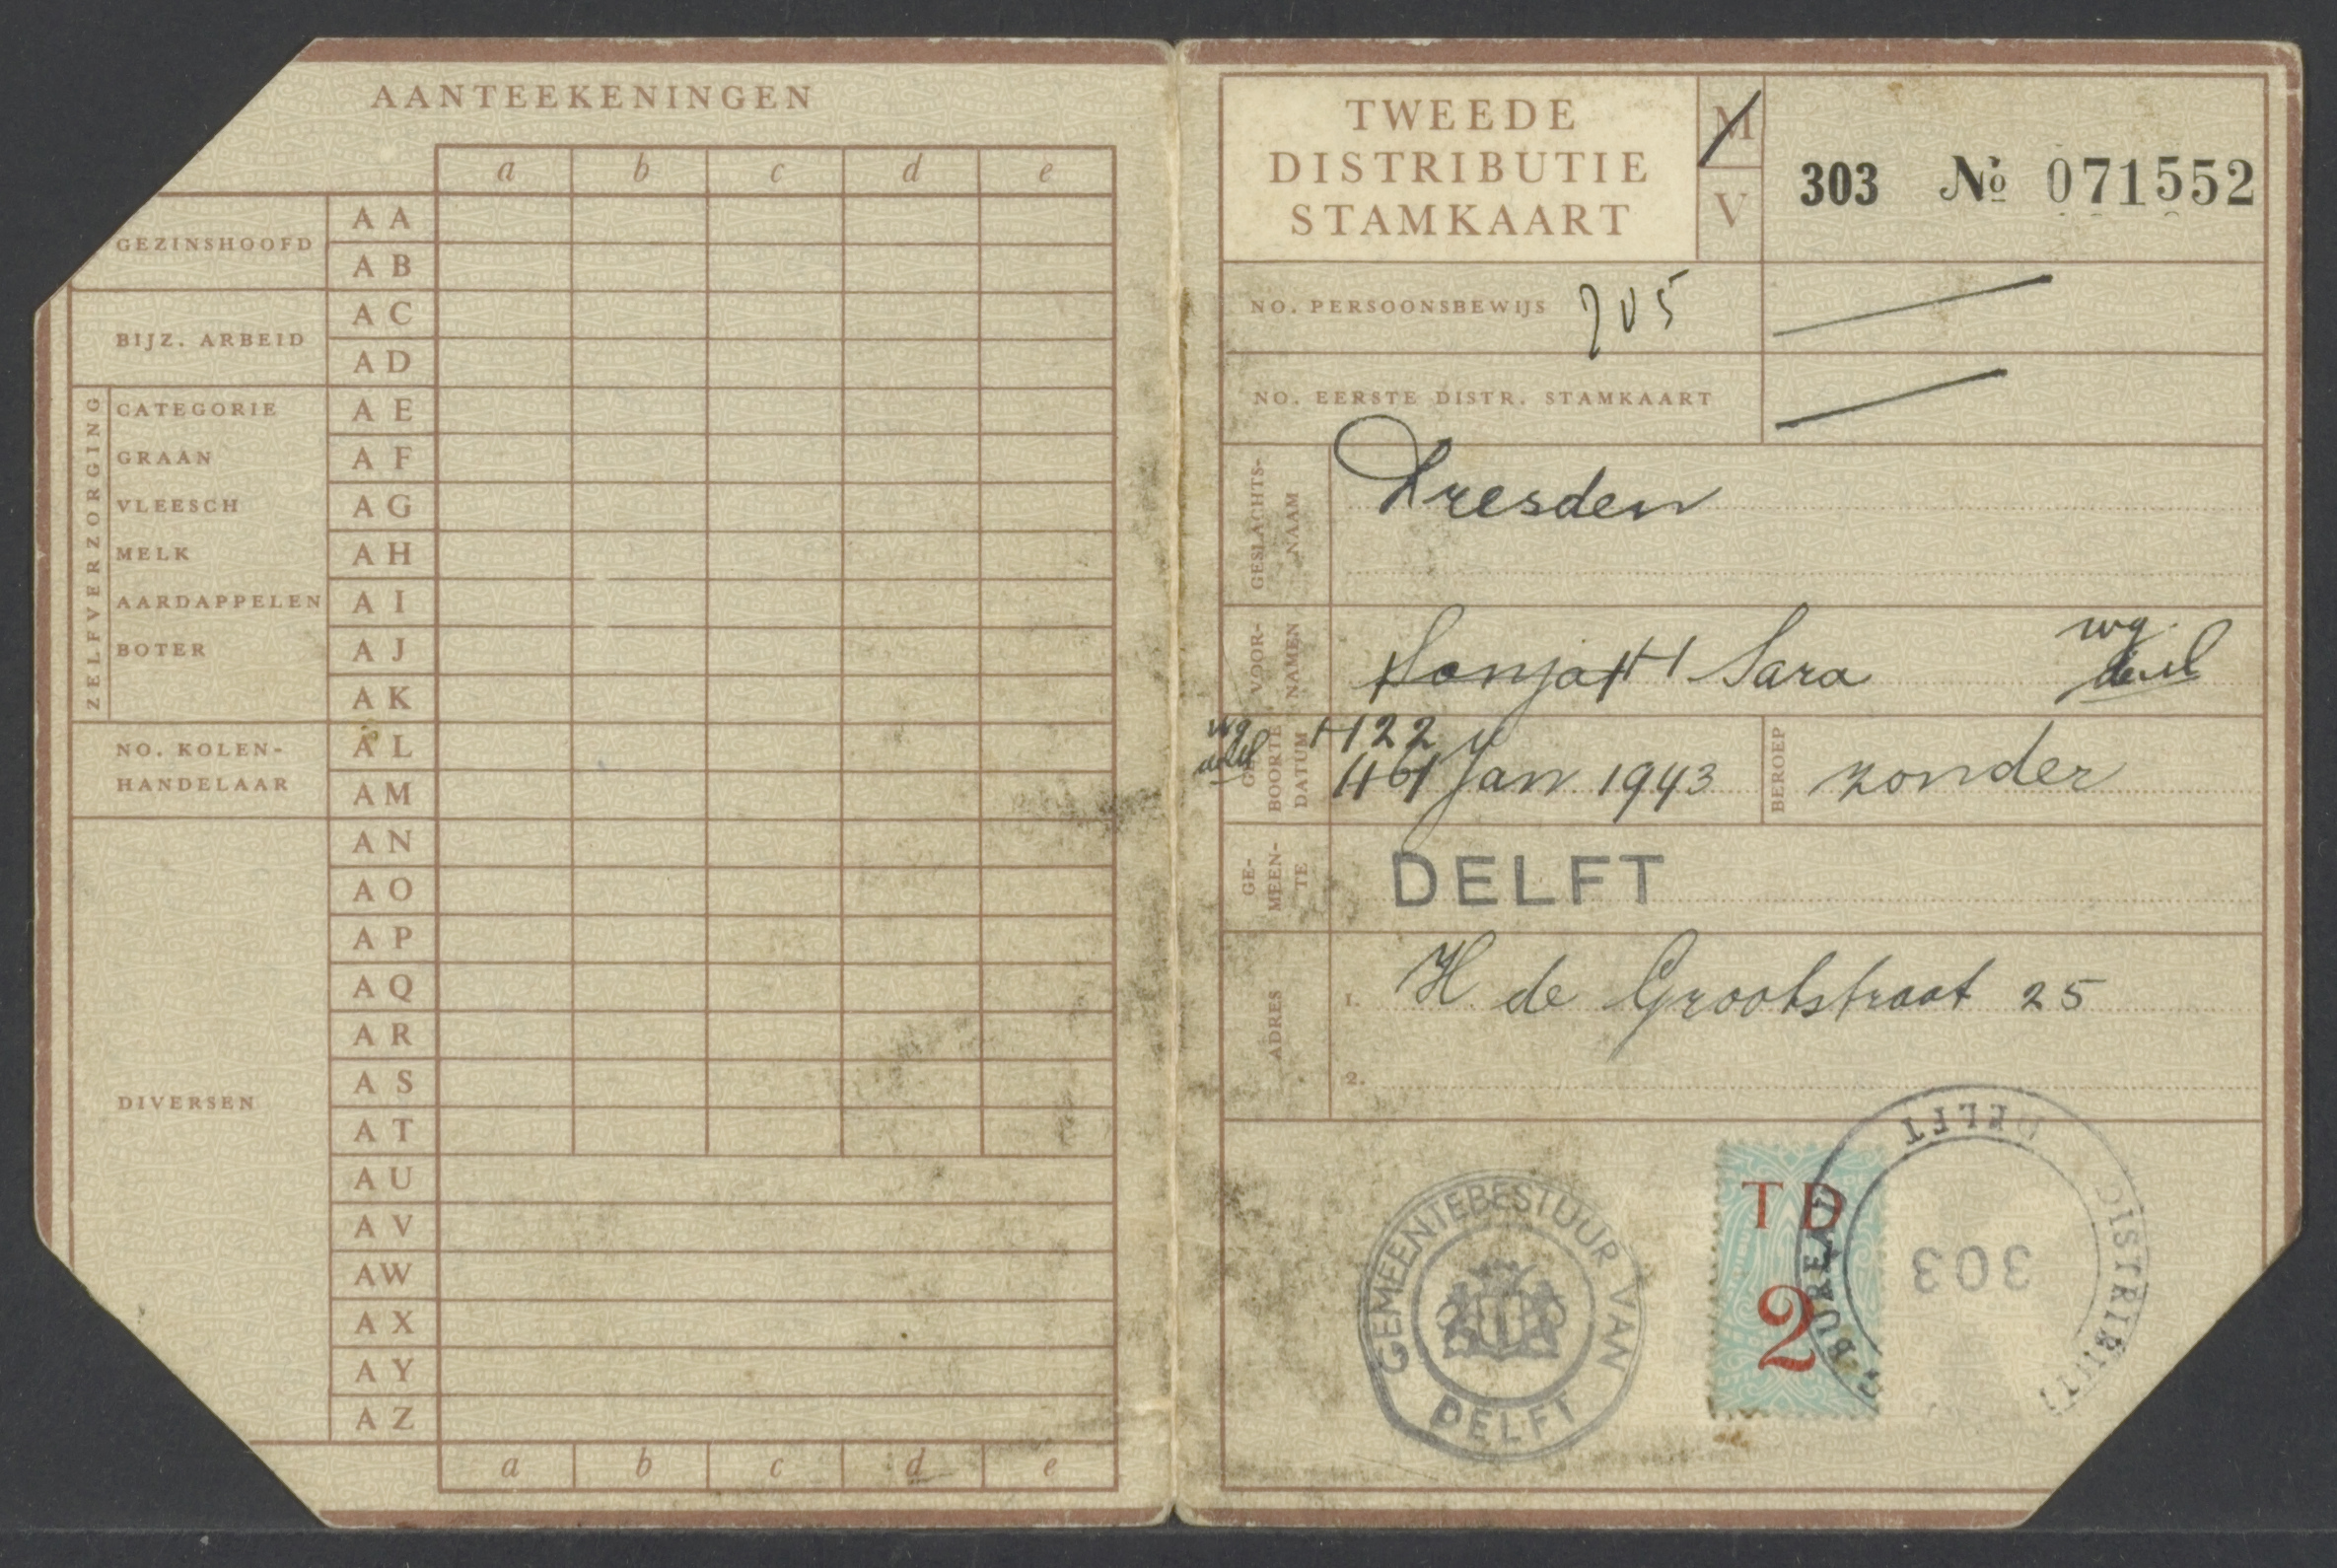 AANTEEKENINGEN
a b c d e
GEZINSHOOFD
A A
A B
BIJZ. ARBEID
A C
A D
ZELFVERZORGING
CATEGORIE A E
GRAAN A F
VLEESCH A G
MELK A H
AARDAPPELEN A I
BOTER A J
A K
NO. KOLEN-
HANDELAAR
A L
A M
DIVERSEN
A N
A O
A P
A Q
A R
A S
A T
A U
A V
A W
A X
A Y
A Z
a b c d e
TWEEDE
DISTRIBUTIE
STAMKAART
M
V
303 No 071552
NO. PERSOONSBEWIJS
NO. EERSTE DISTR. STAMKAART
GESLACHTS-
NAAM
Dresden
VOOR-
NAMEN
Sonja Sara
wg.
wg
GE-
BOORTE
DATUM
22
Jan. 1943
BEROEP
zonder
GE-
MEEN-
TE
DELFT
ADRES
1. H. de Grootstraat 25
2.
GEMEENTEBESTUUR VAN
DELFT
T D
2
DISTRIBUTI
BUREAU
DELFT
303